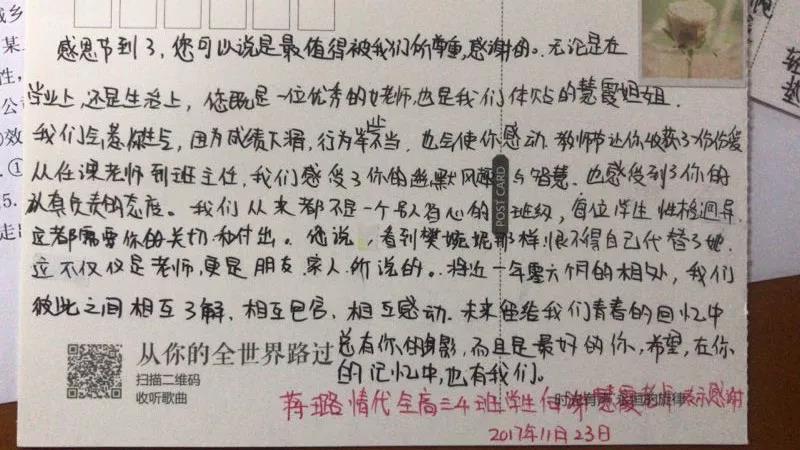 感恩节到了,您可以说是最值得被我们所尊重,感谢的。无论是在
学业上,还是生活上,您既是一位优秀的女老师,也是我们体贴的慧霞姐姐.
我们会惹你生气,因为成绩下滑,行为举止不当,也会使你感动.教师节让你收获了一份份爱
从任课老师到班主任,我们感受了你的幽默风趣与智慧.也感受到了你的
认真负责的态度。我们从来都不是一个省心的班级,每位学生性格迥异
这都需要你的关切和付出。您说,看到樊婉妮那样,恨不得自己代替了她.
这不仅仅是老师,更是朋友.家人.所说的。将近一年零六个月的相处,我们
彼此之间相互了解.相互包容.相互感动.未来留给我们青春的回忆中
总有你的身影,而且是最好的你,希望,在你
的记忆中,也有我们。
POST CARD
从你的全世界路过
扫描二维码
收听歌曲
蒋璐情代全高三4班学生向谢慧霞老师表示感谢
2017年11月23日
性,
公
效
①
5.
走出